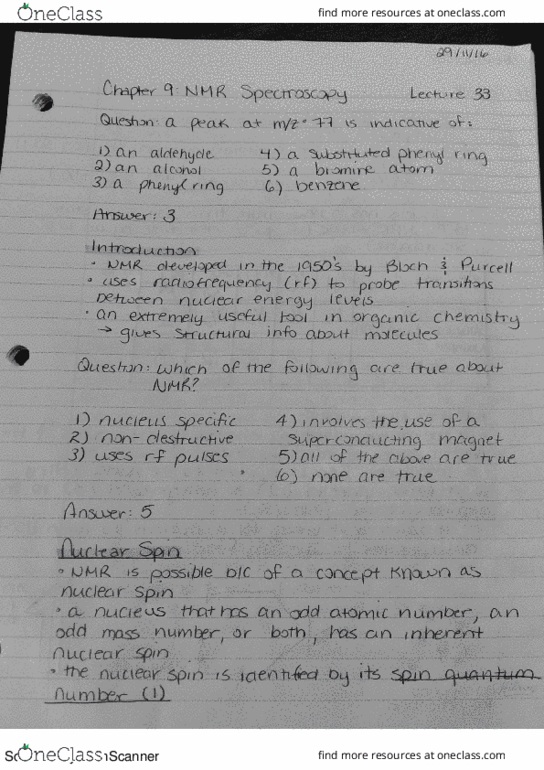 OneClass
find more resources at oneclass.com
29/11/16
Chapter 9: NMR Spectroscopy Lecture 33
Question: a peak at m/z = 77 is indicative of:
1) an aldehyde 4) a substituted phenyl ring
2) an alconol 5) a bromine atom
3) a phenyl ring 6) benzene
Answer: 3
Introduction
• NMR developed in the 1950's by Bloch & Purcell
• uses radiofrequency (rf) to probe transitions
between nuclear energy levels
• an extremely useful tool in organic chemistry
→ gives structural info about molecules
Question: which of the following are true about
NMR?
1) nucleus specific 4) involves the use of a
2) non-destructive superconducting magnet
3) uses rf pulses 5) all of the above are true
6) none are true
Answer: 5
Nuclear Spin
• NMR is possible b/c of a concept known as
nuclear spin
• a nucleus that has an odd atomic number, an
odd mass number, or both, has an inherent
nuclear spin
• the nuclear spin is identified by its spin quantum
number (I)
OneClass Scanner
find more resources at oneclass.com